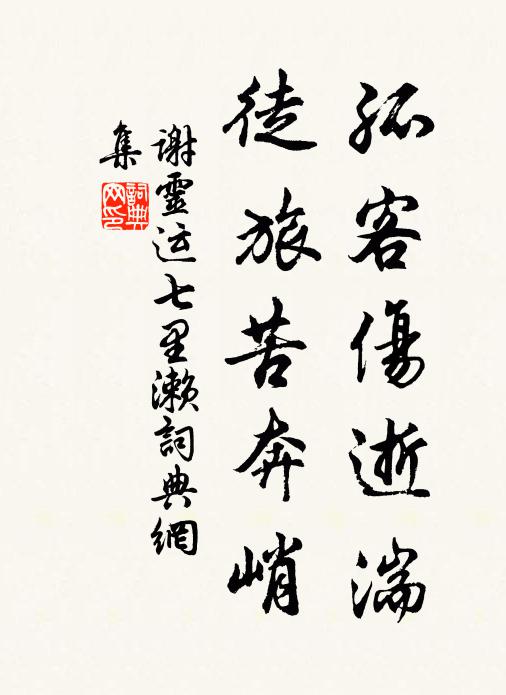 孤客傷逝湍
徒旅苦奔峭
謝靈运七里濑詞典網
集
詞典
网印